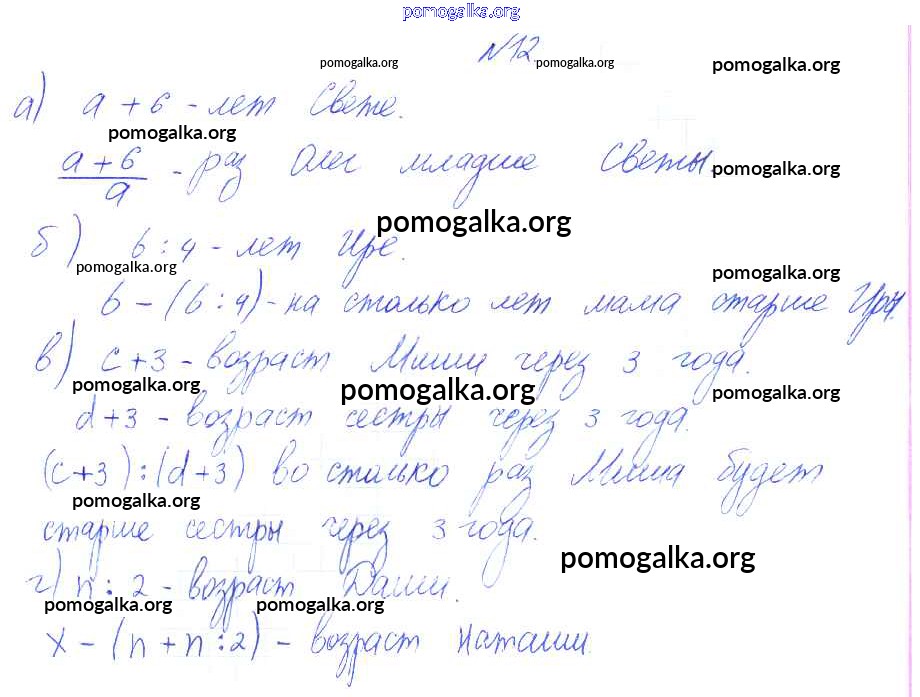 pomogalka.org
№12
pomogalka.org pomogalka.org pomogalka.org
а) а + 6 - лет Свете.
pomogalka.org
(а + 6)/а - раз Олег младше Светы.
pomogalka.org
pomogalka.org
б) b : 4 - лет Ире.
pomogalka.org pomogalka.org
b - (b : 4) - на столько лет мама старше Иры.
в) c + 3 - возраст Миши через 3 года.
pomogalka.org pomogalka.org pomogalka.org
d + 3 - возраст сестры через 3 года.
(c + 3) : (d + 3) во столько раз Миша будет
pomogalka.org
старше сестры через 3 года.
pomogalka.org
г) n : 2 - возраст Даши.
pomogalka.org pomogalka.org
x - (n + n : 2) - возраст Наташи.